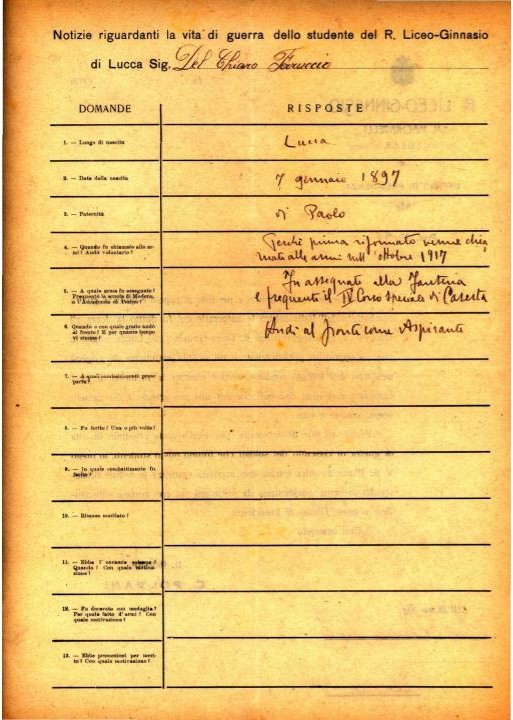 Notizie riguardanti la vita di guerra dello studente del R. Liceo-Ginnasio
di Lucca Sig. Del Chiaro Ferruccio
DOMANDE
RISPOSTE
1. — Luogo di nascita
Lucca
2. — Data della nascita
7 gennaio 1897
3. — Paternità
di Paolo
4. — Quando fu chiamato alle ar-
mi? Andò volontario?
Perchè prima riformato venne chia
mato alle armi nell'ottobre 1917
5. — A quale arma fu assegnato?
Frequentò la scuola di Modena,
o l'Accademia di Torino?
Fu assegnato alla Fanteria
e frequentò il IV Corso speciale di Caserta
6. Quando e con quale grado andò
al fronte? E per quanto tempo
vi rimase?
Andò al fronte come Aspirante
7. — A quali combattimenti prese
parte?
8. — Fu ferito? Una o più volte?
9. — In quale combattimento fu
ferito?
10. — Rimase mutilato?
11. — Ebbe l'encomio solenne?
Quando? Con quale motiva-
zione?
12. — Fu decorato con medaglia?
Per quale fatto d'armi? Con
quale motivazione?
13. — Ebbe promozioni per meri-
to? Con quale motivazione?